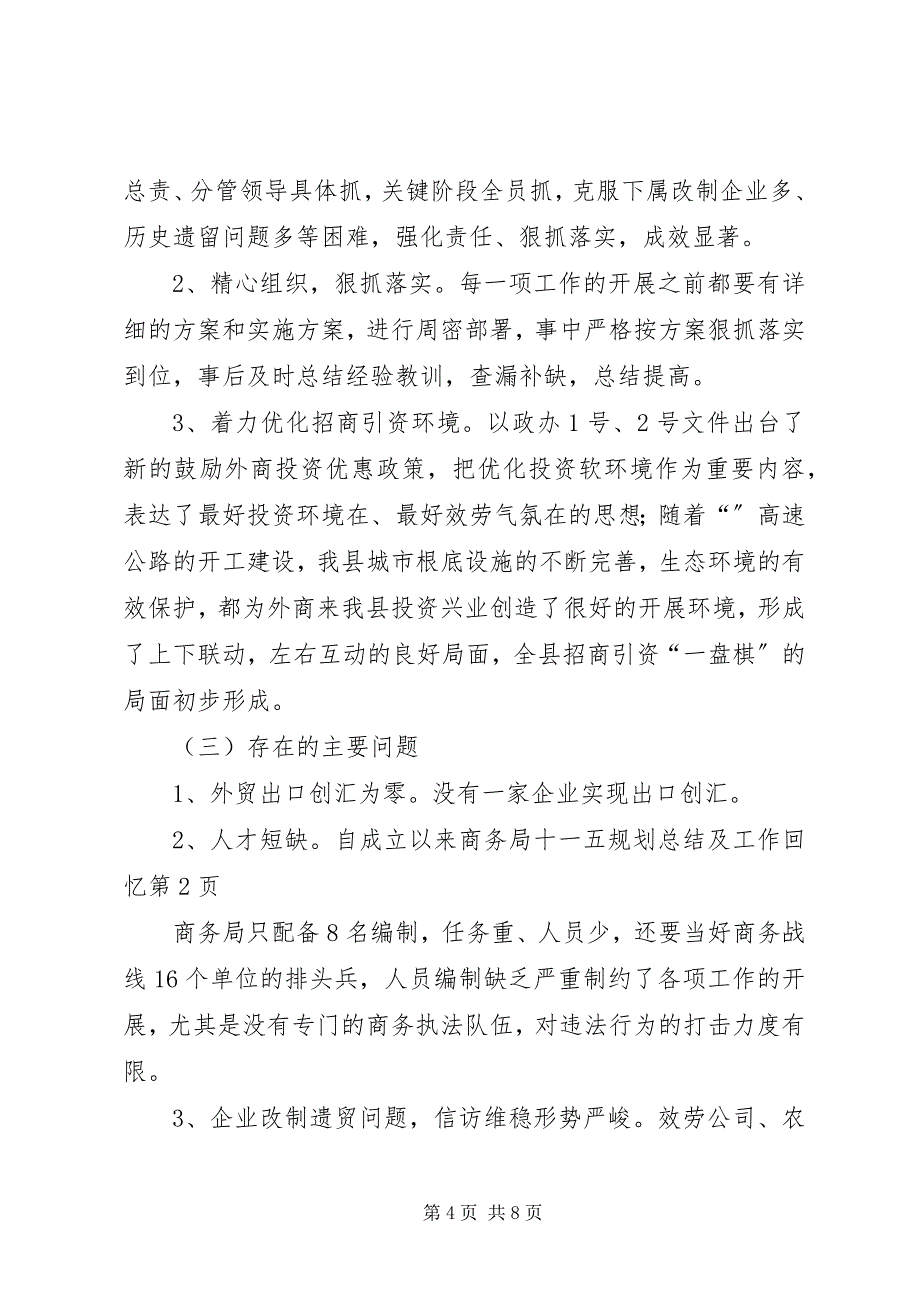 总责、分管领导具体抓，关键阶段全员抓，克服下属改制企业多、
历史遗留问题多等困难，强化责任、狠抓落实，成效显著。
2、精心组织，狠抓落实。每一项工作的开展之前都要有详
细的方案和实施方案，进行周密部署，事中严格按方案狠抓落实
到位，事后及时总结经验教训，查漏补缺，总结提高。
3、着力优化招商引资环境。以政办 1 号、2 号文件出台了
新的鼓励外商投资优惠政策，把优化投资软环境作为重要内容，
表达了最好投资环境在、最好效劳气氛在的思想；随着“〞高速
公路的开工建设，我县城市根底设施的不断完善，生态环境的有
效保护，都为外商来我县投资兴业创造了很好的开展环境，形成
了上下联动，左右互动的良好局面，全县招商引资“一盘棋〞的
局面初步形成。
（三）存在的主要问题
1、外贸出口创汇为零。没有一家企业实现出口创汇。
2、人才短缺。自成立以来商务局十一五规划总结及工作回
忆第 2 页
商务局只配备 8 名编制，任务重、人员少，还要当好商务战
线 16 个单位的排头兵，人员编制缺乏严重制约了各项工作的开
展，尤其是没有专门的商务执法队伍，对违法行为的打击力度有
限。
3、企业改制遗贸问题，信访维稳形势严峻。效劳公司、农
第 4 页 共 8 页